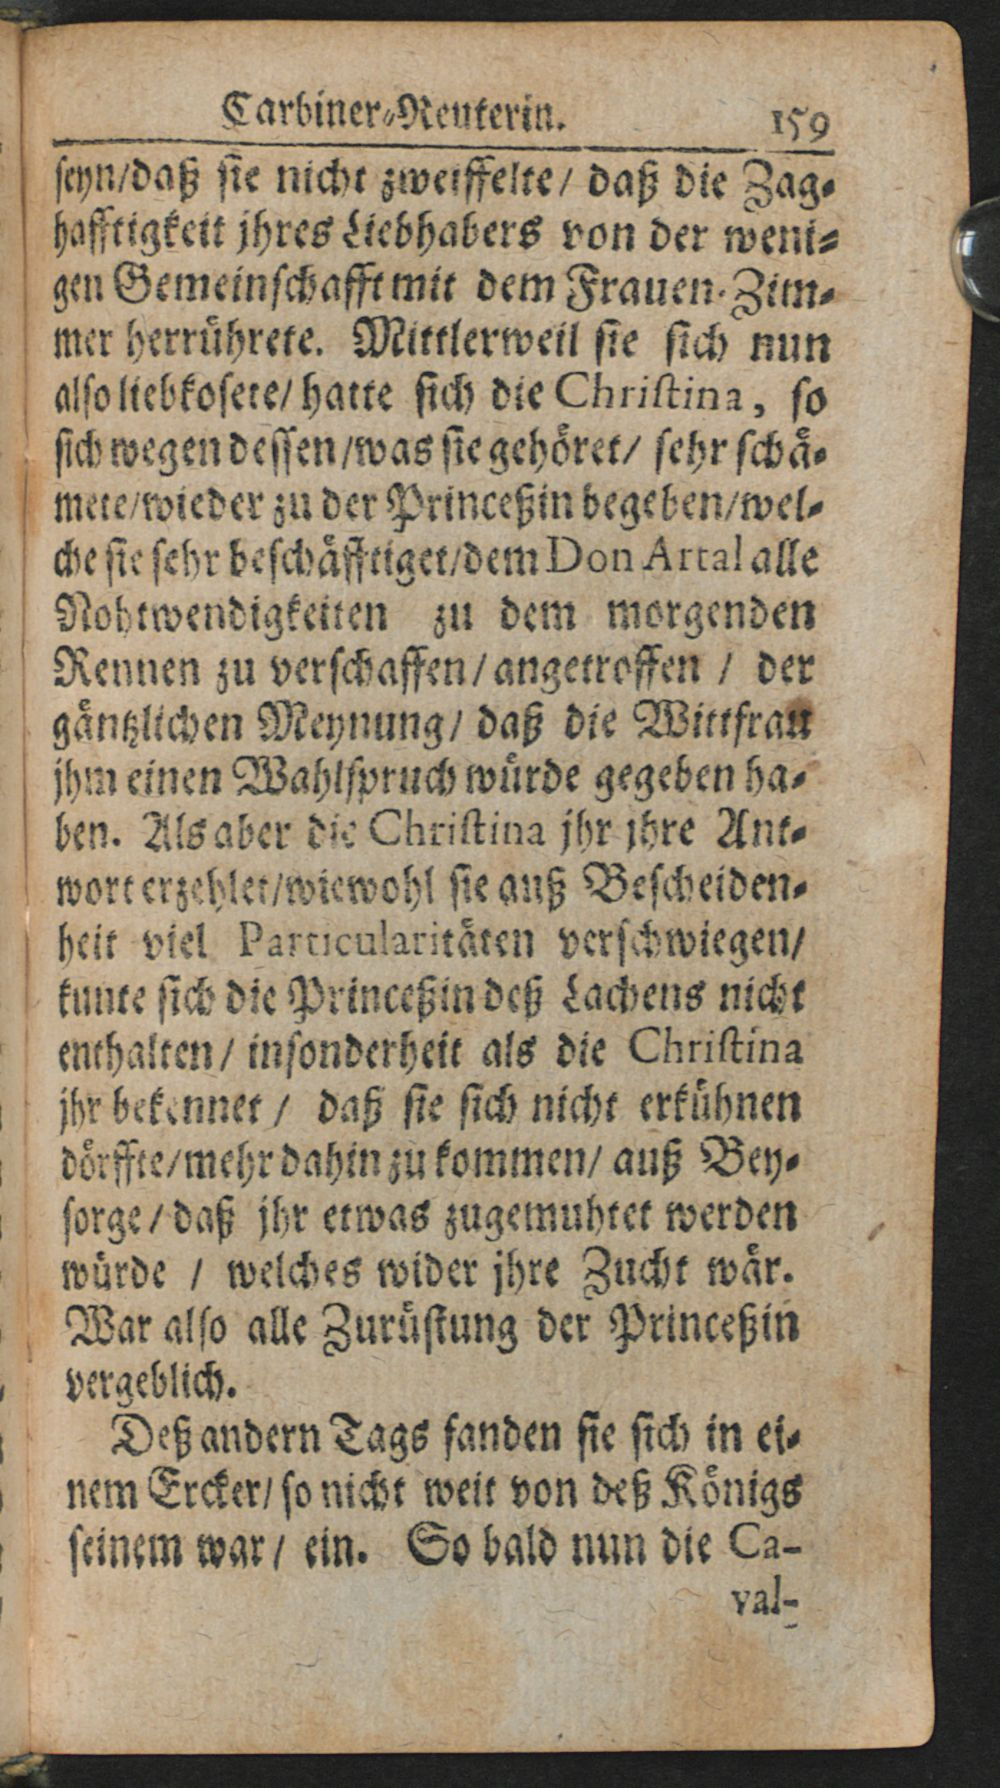 Carbiner-Reuterin. 159
seyn/daß sie nicht zweiffelte/ daß die Zag-
hafftigkeit jhres Liebhabers von der weni-
gen Gemeinschafft mit dem Frauen-Zim-
mer herrührete. Mittlerweil sie sich nun
also liebkosete/ hatte sich die Christina, so
sich wegen dessen/was sie gehöret/ sehr schä-
mete/wieder zu der Princeßin begeben/wel-
che sie sehr beschäfftiget/dem Don Artal alle
Nohtwendigkeiten zu dem morgenden
Rennen zu verschaffen/ angetroffen / der
gäntzlichen Meynung/ daß die Wittfrau
jhm einen Wahlspruch würde gegeben ha-
ben. Als aber die Christina jhr jhre Ant-
wort erzehlet/wiewohl sie auß Bescheiden-
heit viel Particularitäten verschwiegen/
kunte sich die Princeßin deß Lachens nicht
enthalten/ insonderheit als die Christina
jhr bekennet / daß sie sich nicht erkühnen
dörffte/mehr dahin zu kommen/ auß Bey-
sorge/ daß jhr etwas zugemuhtet werden
würde / welches wider jhre Zucht wär.
War also alle Zurüstung der Princeßin
vergeblich.
Deß andern Tags fanden sie sich in ei-
nem Ercker/ so nicht weit von deß Königs
seinem war/ ein. So bald nun die Ca-
val-